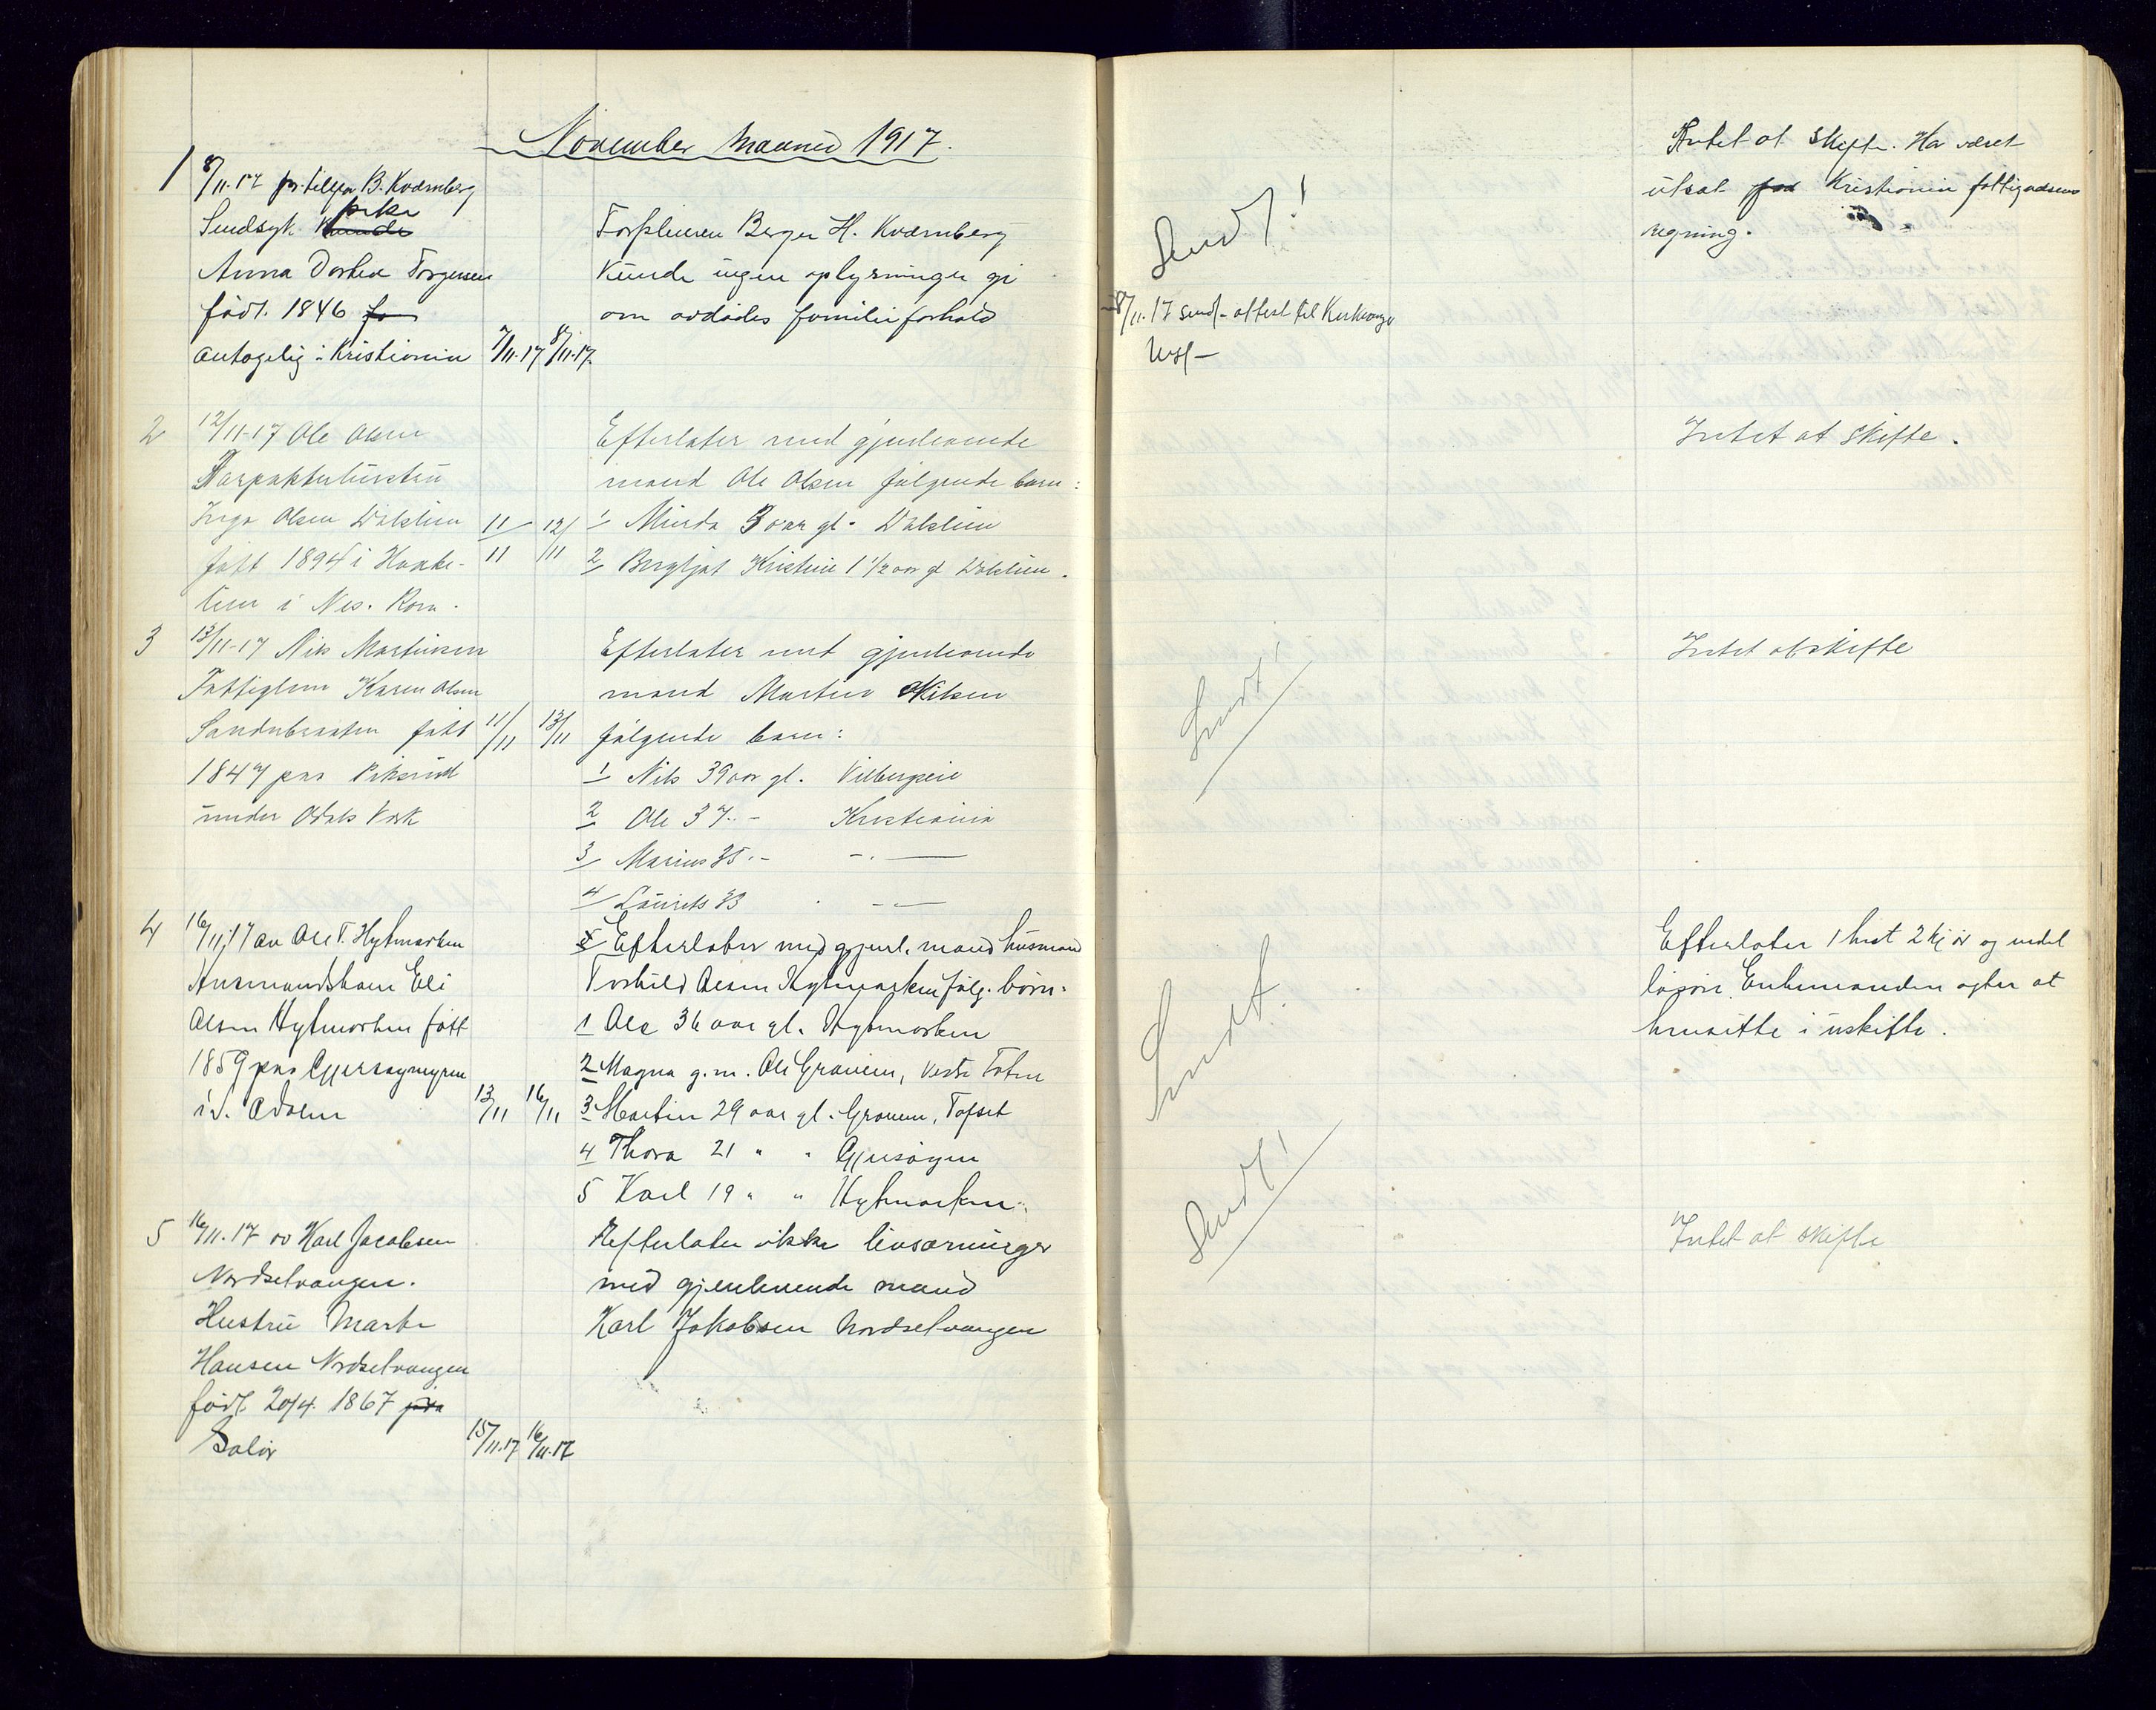 November Maaned 1917.
1 8/11-17 pr. telefon B. Kværnberg
Sindsyk Kvinde pike
Anna Dorthea Torgersen
født. 1846
antagelig i Kristiania 7/11-17 8/11-17.
Forpleieren Berger H. Kværnberg
kunde ingen oplysninger gi
om avdødes familieforhold
Sendt!
8/11.17 sendt attest til
Intet at skifte. Har været
utsat paa Kristiania fattigvæsens
regning.
2 12/11-17 Ole Olsen
Inga Olsen
født 1894 i
i Nes. Rom.
11/11 12/11
Efterlater med gjenlevende
mand Ole Olsen følgende barn:
1 Minda 3 aar gl.
2 Bergljot Kristine 1 1/2 aar gl
Intet at skifte.
3 13/11-17 Nils Martinsen
Fattiglem Karen Olsen
Sandnbraaten født 11/11 13/11
1847 paa
under Odals Verk
Efterlater med gjenlevende
mand Martin Nilsen
følgende barn:
1 Nils 39 aar gl. Vilbergeie
2 Ole 37 .. - Kristiania
3 Marius 35 .. - -..-
4 Laurits 33 . -..-
Sendt!
Intet at skifte
4 16/11-17 av Ole T. Hytmarken
Husmandskone Eli
Olsen Hytmarken født
1859 paa
i S. Odalen 13/11 16/11
Efterlater med gjenl. mand husmand
Torkild Olsen Hytmarken følg. børn:
1 Ole 36 aar gl. Hytmarken
2 Magna g. m. Ole Graneien, Vestre Toten
3 Martin 29 aar gl. Graneien, Tofset
4 Thora 21 " "
5 Karl 19 " " Hytmarken.
Sendt.
Efterlater 1 hest 2 kjør og endel
løsøre. Enkemanden agter at
hensitte i uskifte.
5 16/11.17 av Karl Jacobsen
Nordsetvangen.
Hustru Marte
Hansen Nordsetvangen
født. 20/4. 1867 paa
Solør 15/11.17 16/11.17
Efterlater ikke livsarvinger
med gjenlevende mand
Karl Jakobsen Nordsetvangen
Sendt!
Intet at skifte